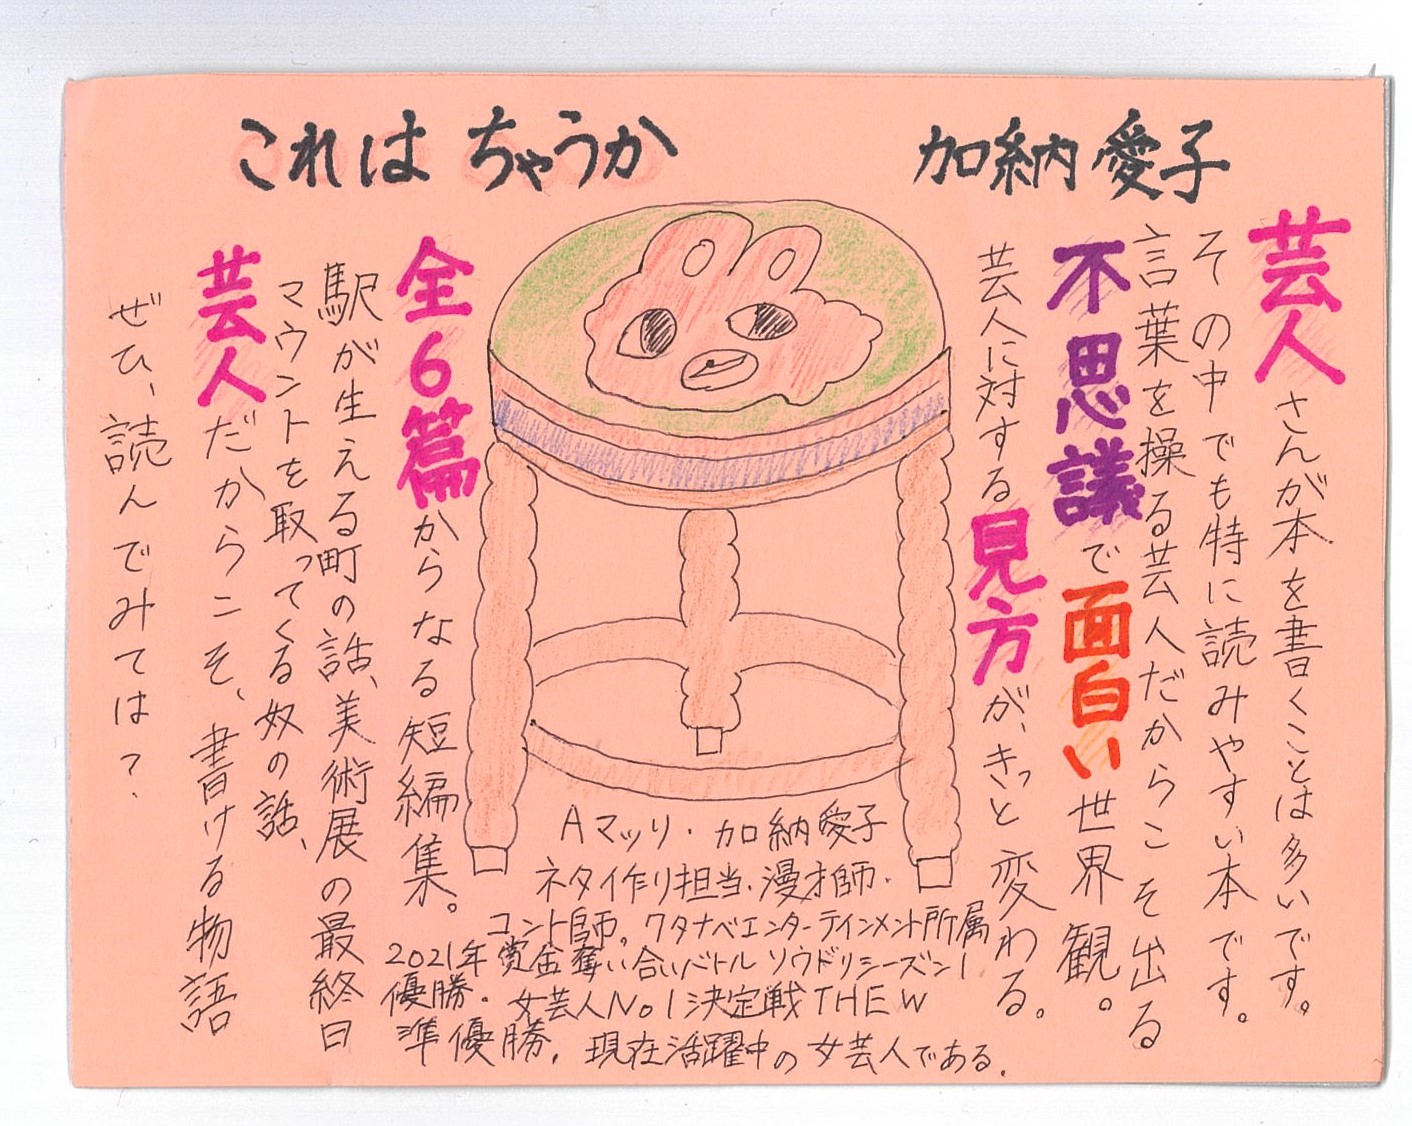 これは ちゃうか
加納愛子
芸人さんが本を書くことは多いです。
その中でも特に読みやすい本です。
言葉を操る芸人だからこそ出る
不思議で面白い世界観。
芸人に対する見方が、きっと変わる。
全6篇からなる短編集。
駅が生える町の話、美術展の最終日
マウントを取ってくる奴の話、
芸人だからこそ、書ける物語
ぜひ、読んでみては?
Aマッソ・加納愛子
ネタ作り担当・漫才師・
コント師。ワタナベエンターテインメント所属
2021年賞金奪い合いバトル ソウドリシーズン1
優勝。女芸人No.1決定戦THE W
準優勝。現在活躍中の女芸人である。